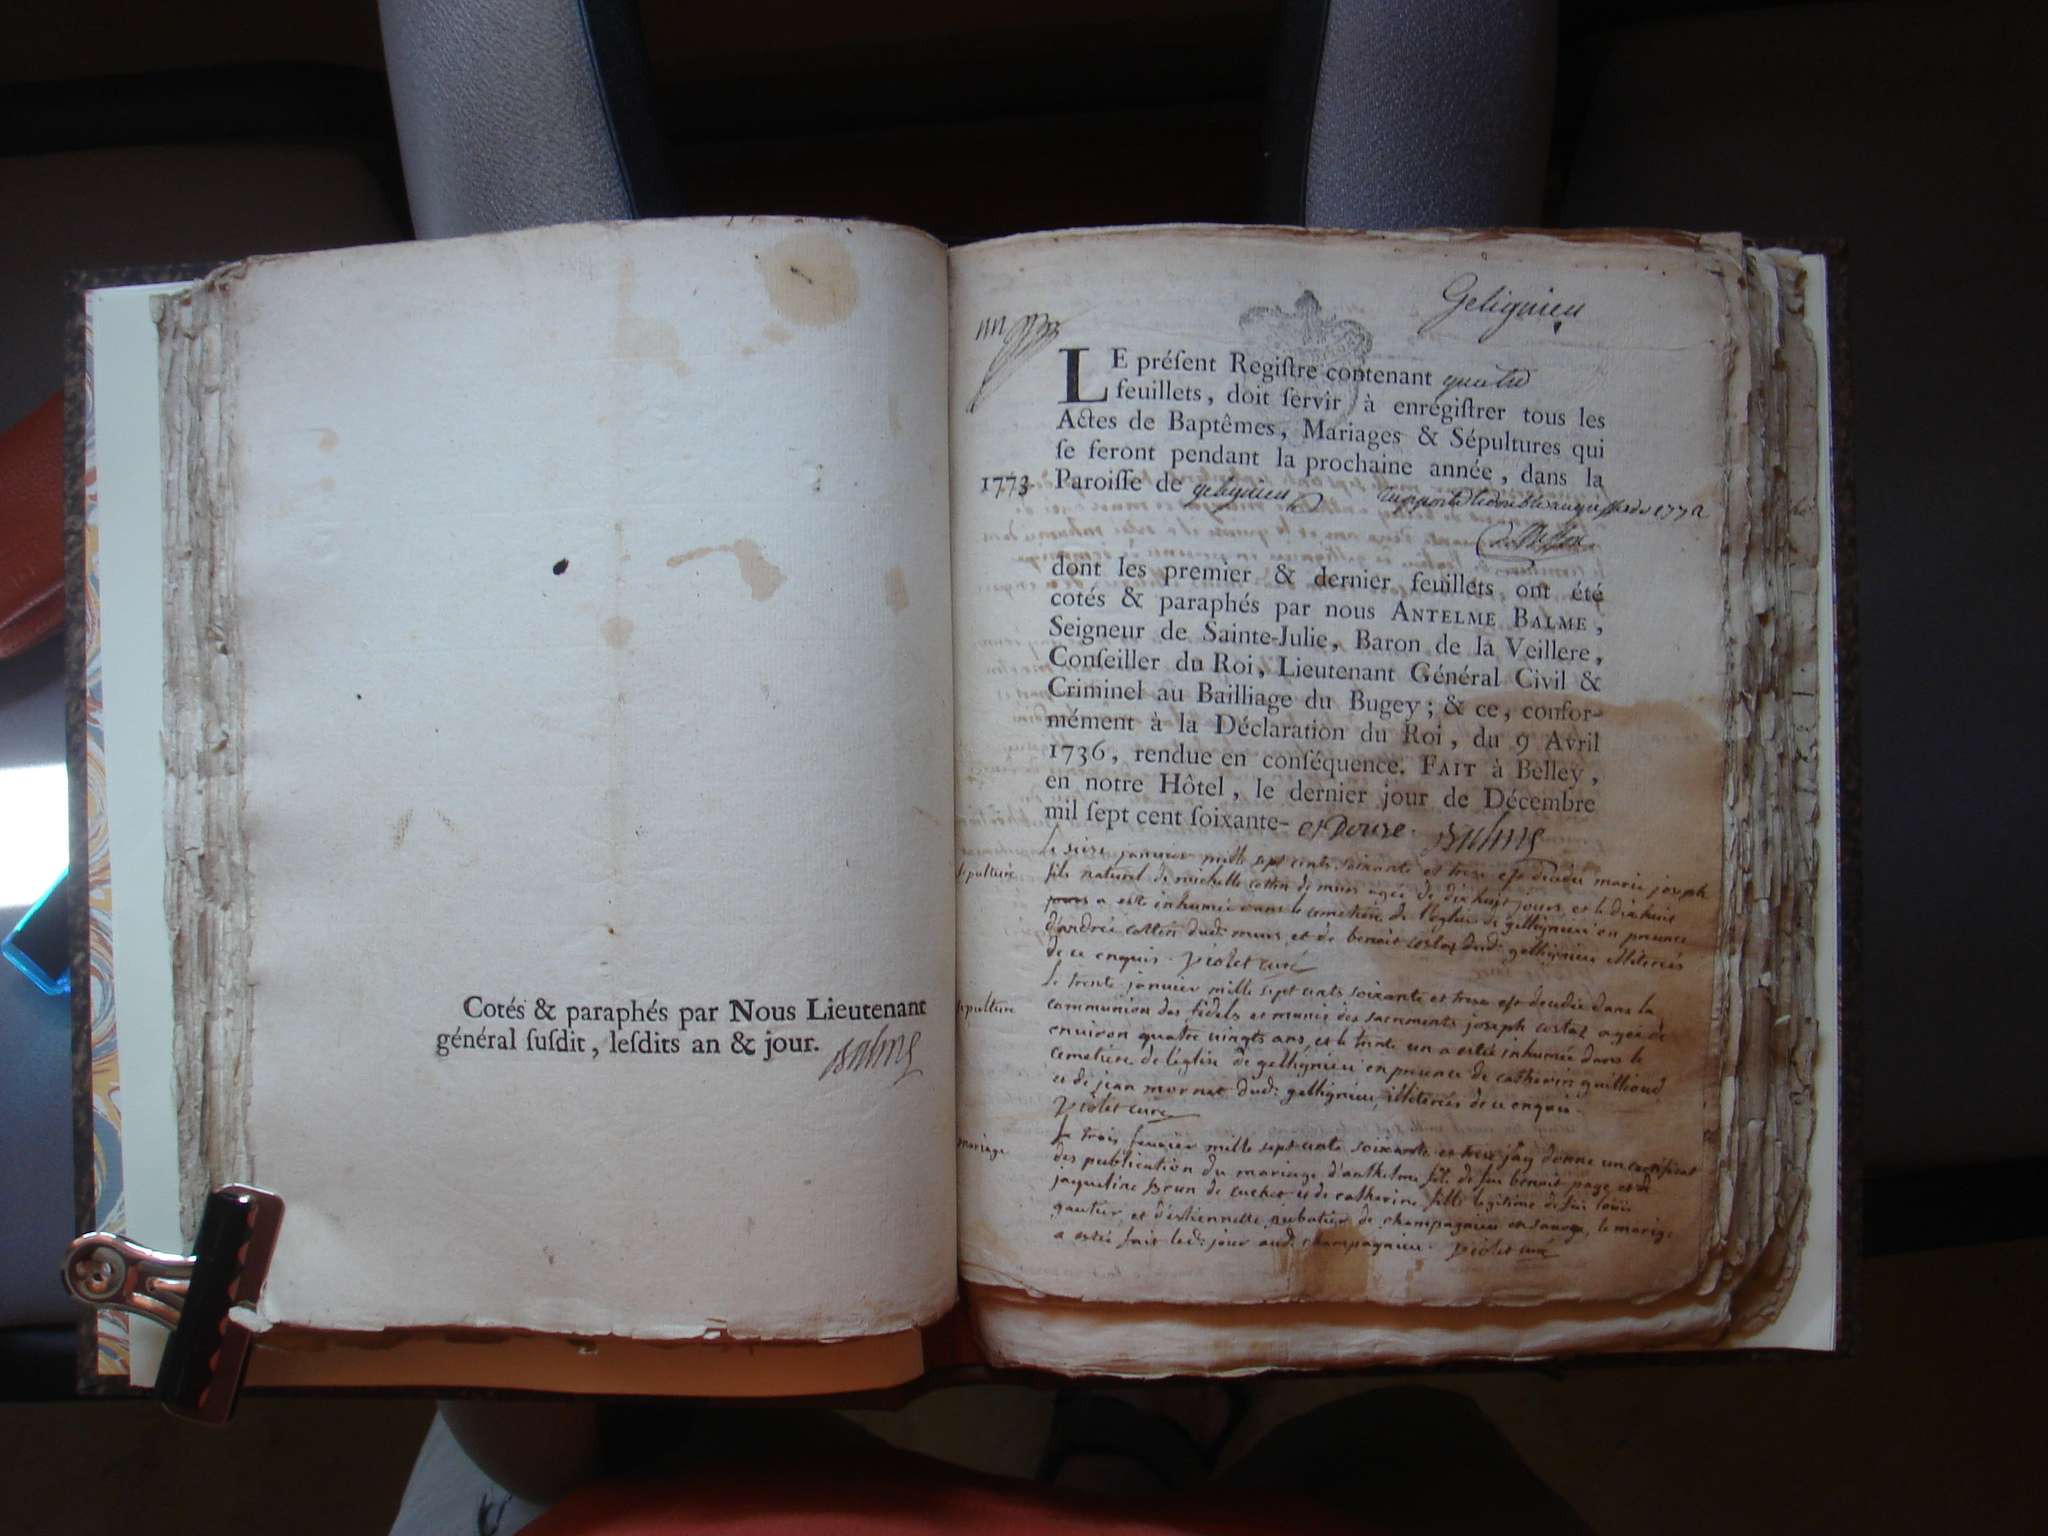 Cotés & paraphés par Nous Lieutenant
général ſuſdit, leſdits an & jour. Balme
Gelignieu
LE préſent Regiſtre contenant quatre
feuillets, doit ſervir à enrégiſtrer tous les
Actes de Baptêmes, Mariages & Sépultures qui
ſe feront pendant la prochaine année, dans la
1773 Paroiſſe de gelignieu
1772
dont les premier & dernier feuillets ont été
cotés & paraphés par nous ANTELME BALME,
Seigneur de Sainte-Julie, Baron de la Veillere,
Conſeiller du Roi, Lieutenant Général Civil &
Criminel au Bailliage du Bugey; & ce, confor-
mément à la Déclaration du Roi, du 9 Avril
1736, rendue en conſéquence. FAIT à Belley,
en notre Hôtel, le dernier jour de Décembre
mil ſept cent ſoixante- et Douze. Balme
Le seize janvier mille sept cents soixante et treze est decedée marie joseph
sepulture fils naturel de michelle cottin de murs agée de dix huit jours et le dix huit
jours a esté inhumée dans le cemetiere de l'eglise de gellignieu en presence
d'andré cottin dud: murs et de benoit costaz dud: gellignieu illiterés
de ce enquis. Violet curé
Le trente janvier mille sept cents soixante et treze est decedée dans la
sepulture communion des fidels et munie des sacrements joseph costaz agée de
environ quatre vingts ans, et le trente un a esté inhumée dans le
cemetiere de l'église de gellignieu en presence de catherin guilloud
et de jean mornet dud: gellignieu, illiterés de ce enquis.
Violet curé
Le trois fevrier mille sept cents soixante et treze jay donné un certificat
mariage des publication du mariage d'anthelme fils de feu benoit page et de
jaqueline Brun de cuchet et de catherine fille legitime de feu louis
gautier et d'estiennette rubatier de champagnieu en savoye, le mariage
a estée fait led: jour aud: champagnieu. Violet curé